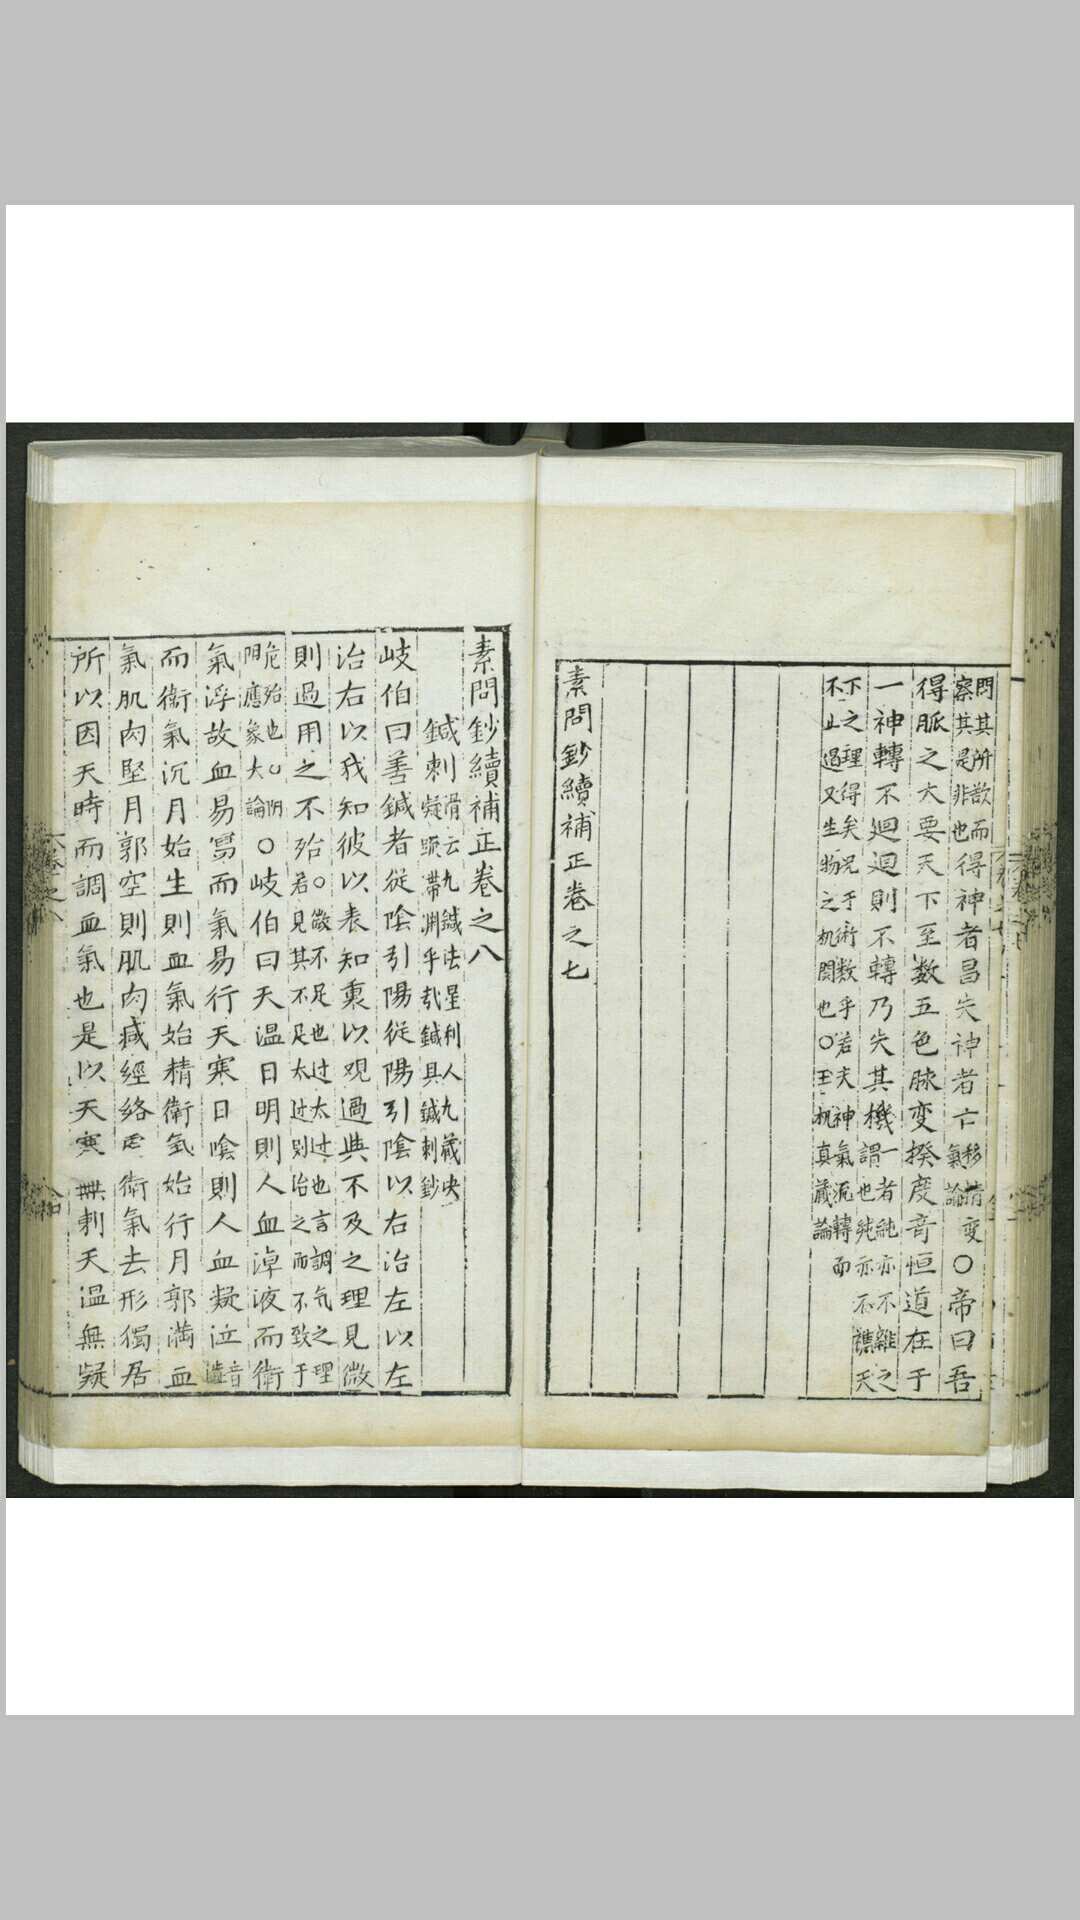 問其所欲而察其是非也得神者昌失神者亡移精变氣論○帝曰吾
得脈之大要天下至数五色脉变揆度奇恒道在于
一神轉不迴迴則不轉乃失其機謂一者純亦不雜之也純亦不襍天
下之理得矣况于術数乎若夫神氣流轉而不止過又生物之机関也○王机真藏論
素問鈔續補正卷之七
素問鈔續補正卷之八
鍼刺滑云九鍼法星利人九藏决凝顺滯渊乎㢤鍼具鍼刺鈔
岐伯曰善鍼者從陰引陽從陽引陰以右治左以左
治右以我知彼以表知裏以观過與不及之理見微
則過用之不殆○微不足也过太过也言調气之理若見其不足太过则治之而不致于
危殆也○阴陽應象大論○岐伯曰天温日明則人血淖液而衛
氣浮故血易寫而氣易行天寒日陰則人血凝泣音澁
而衛氣沉月始生則血氣始精衛氣始行月郭满血
氣肌肉堅月郭空則肌肉减經絡虚衛氣去形獨居
所以因天時而調血氣也是以天寒無刺天温無凝
卷之八